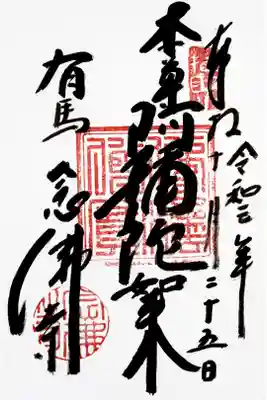 奉拝
令和三年
十月二十五日
本尊阿彌陀如来
有馬
念佛寺